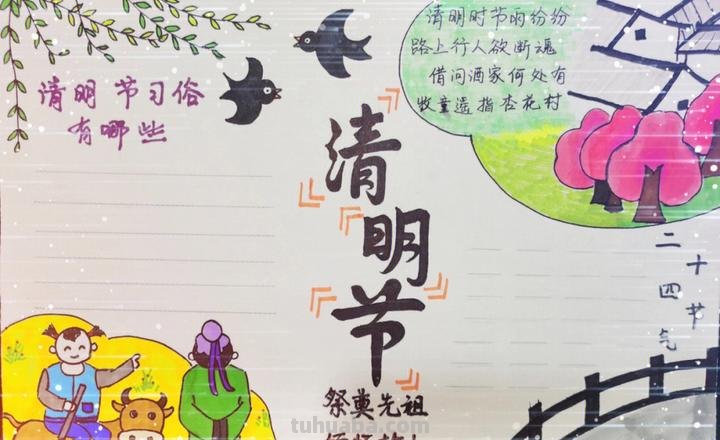 清明节习俗
有哪些
清明时节雨纷纷
路上行人欲断魂
借问酒家何处有
牧童遥指杏花村
清明节
二十四节气
祭奠先祖
tuhuaba.com